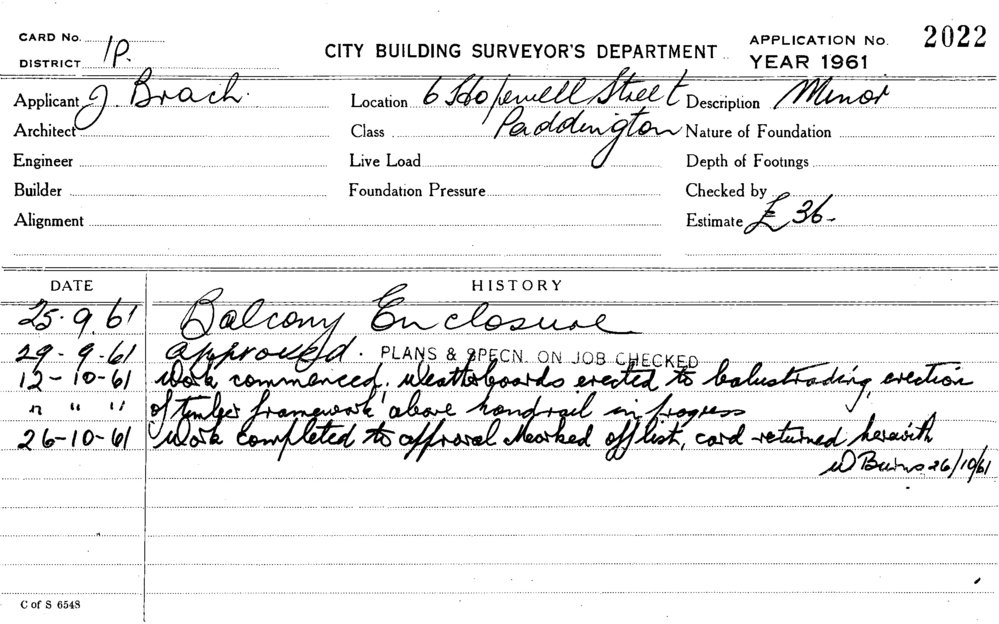 CARD No. 1P.
CITY BUILDING SURVEYOR'S DEPARTMENT
APPLICATION No. 2022
DISTRICT
YEAR 1961
Applicant J Brach.
Location 6 Hopewell Street
Description Minor
Architect
Class Paddington
Nature of Foundation
Engineer
Live Load
Depth of Footings
Builder
Foundation Pressure
Checked by
Alignment
Estimate £ 36-
DATE HISTORY
25.9.61 Balcony Enclosure
29-9-61 approved. PLANS & SPECN. ON JOB CHECKED
12-10-61 Work commenced. Weatherboards erected to balustrading, erection
" " " of timber framework above handrail in progress
26-10-61 Work completed to approval Marked off list, card returned herewith
W Burns 26/10/61
C of S 6548